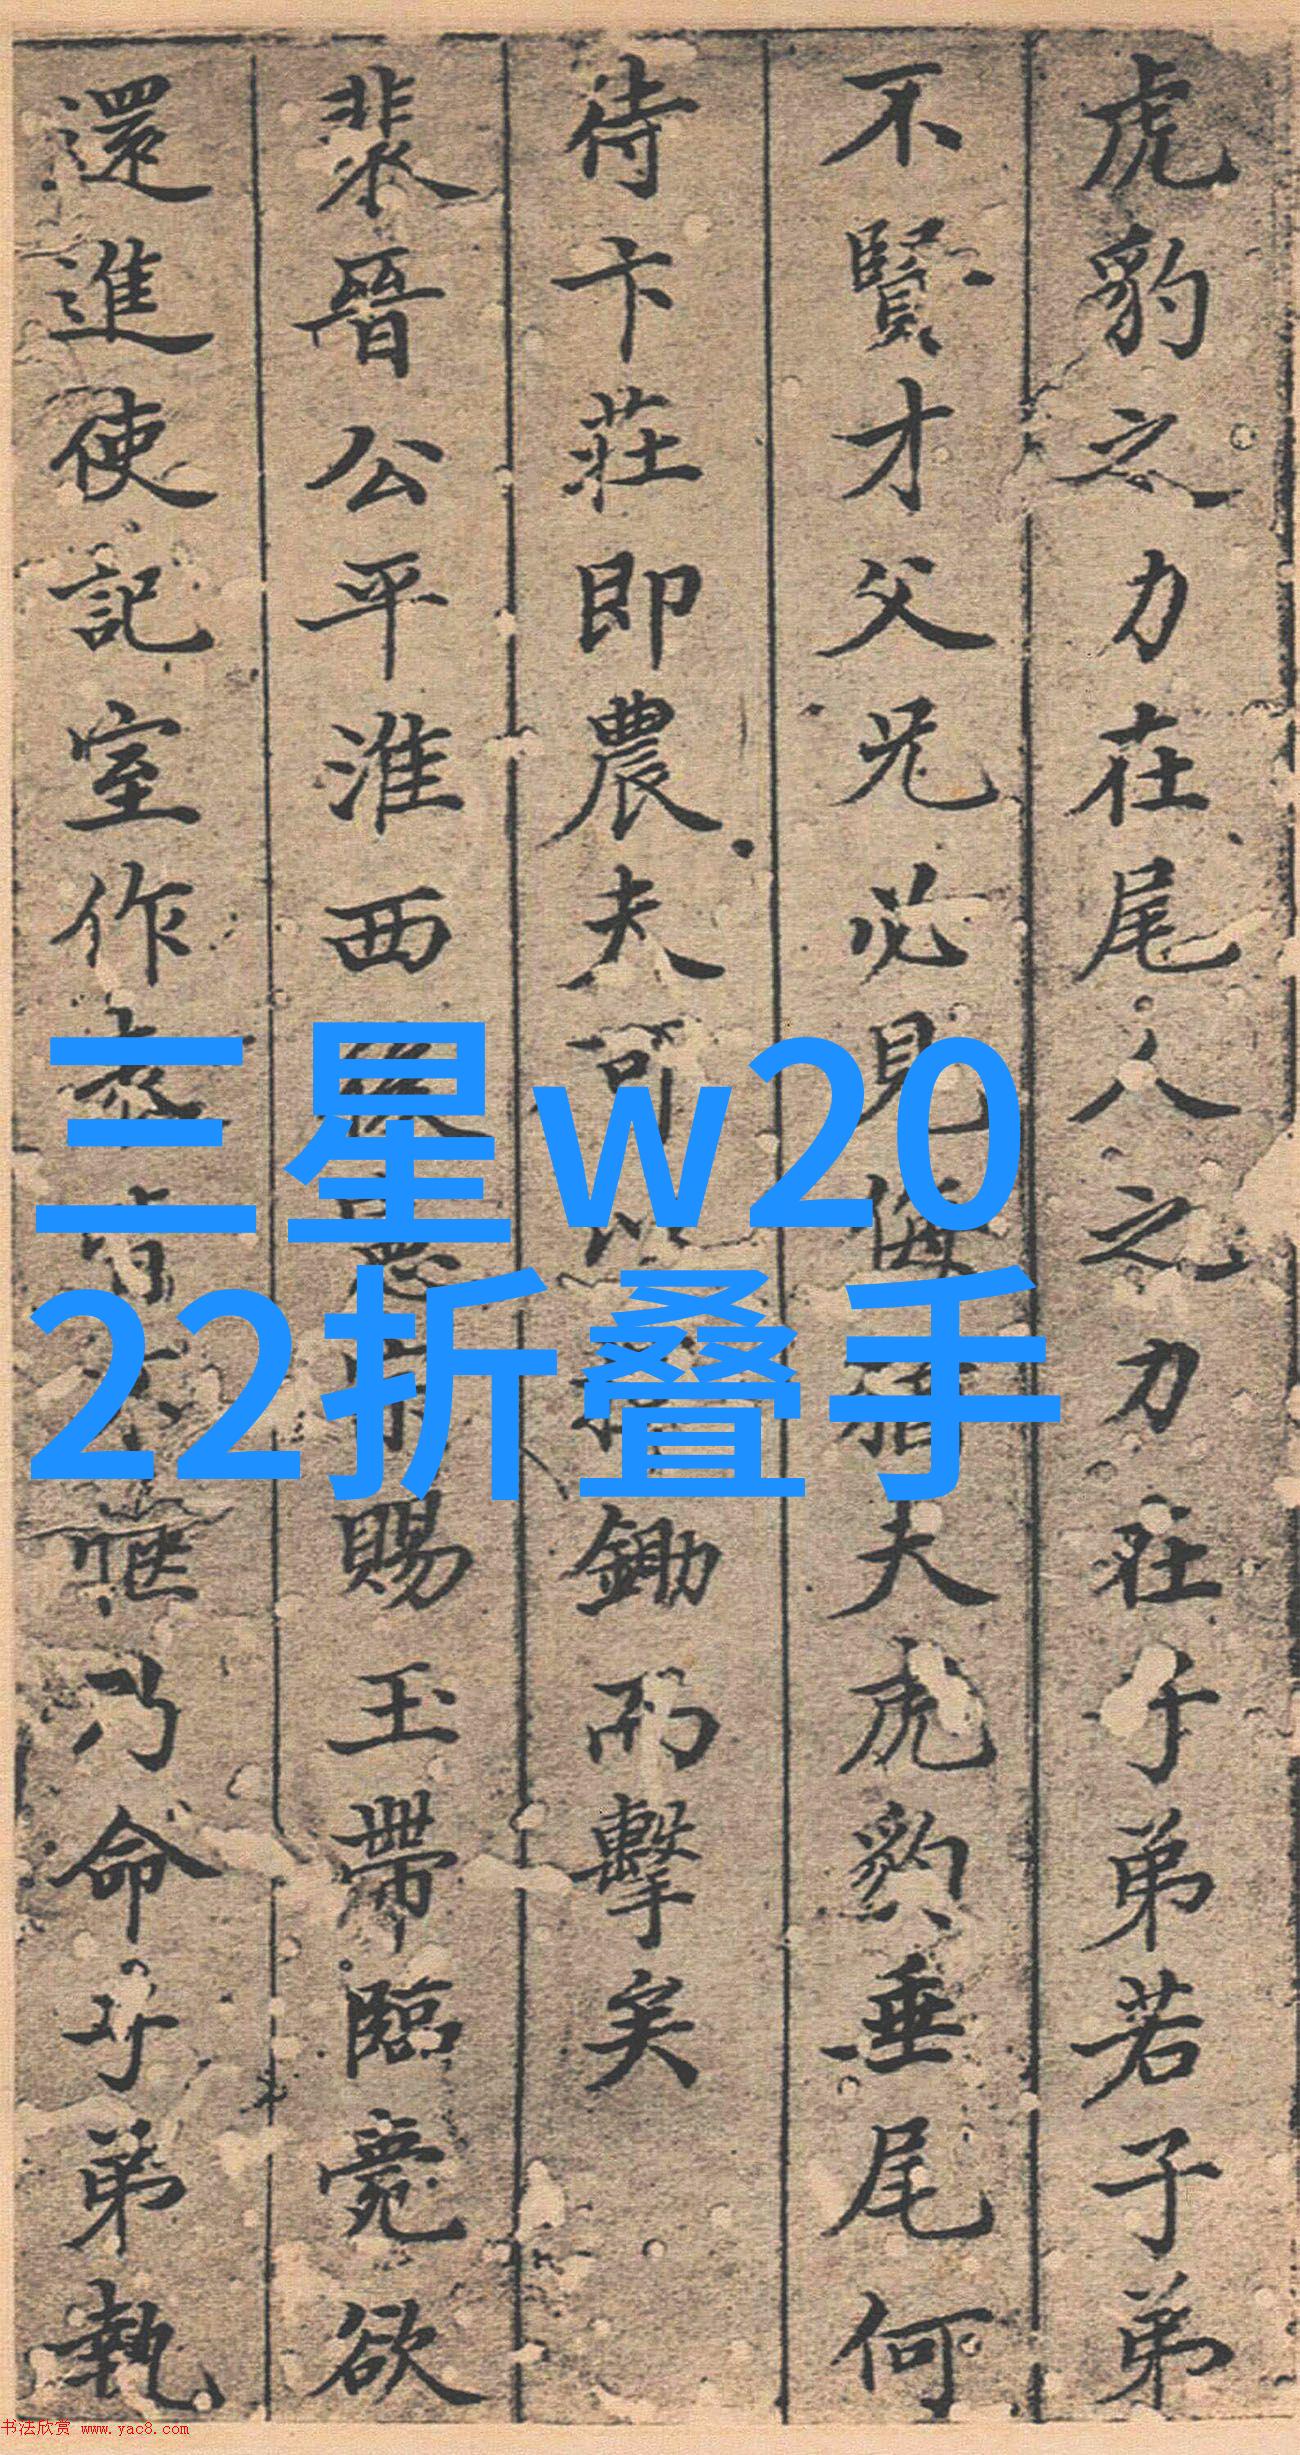 虎豹之力在尾人之力在子弟若子弟
不賢才父兄必見侮猶夫虎豹垂尾何
待卞莊即農夫可以鋤而擊矣
裴晉公平淮西後憲宗賜玉帶臨薨欲
還進使記室作表皆不愜乃命子弟執
三星w20
22折叠手
书法欣赏 www.yac8.com